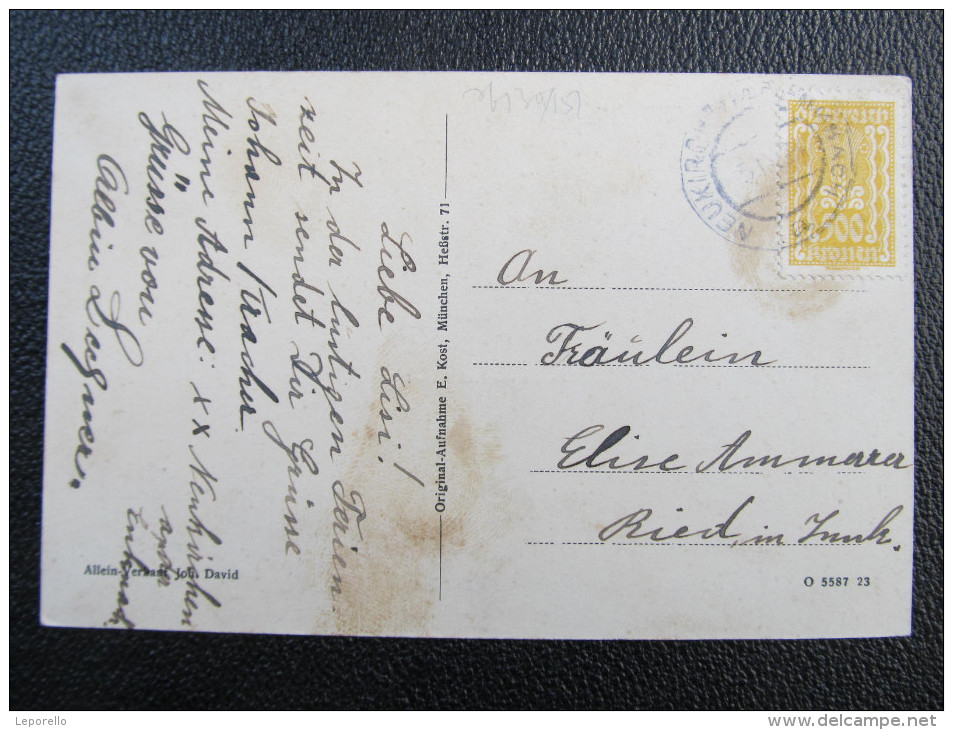 Liebe Lisi!
In der lustigen Ferien-
zeit sendet Dir Grüsse
Johann Kracher.
Meine Adresse: x x Neukirchen
an der
Enknach
Grüsse von
Albin
Original-Aufnahme E. Kost, München, Heßstr. 71
Allein-Versand Joh. David
NEUKIRCHEN
Österreich
500
Kronen
An
Fräulein
Elise Ammerer
Ried, in Innk.
O 5587 23
Leporello
www.delcampe.net